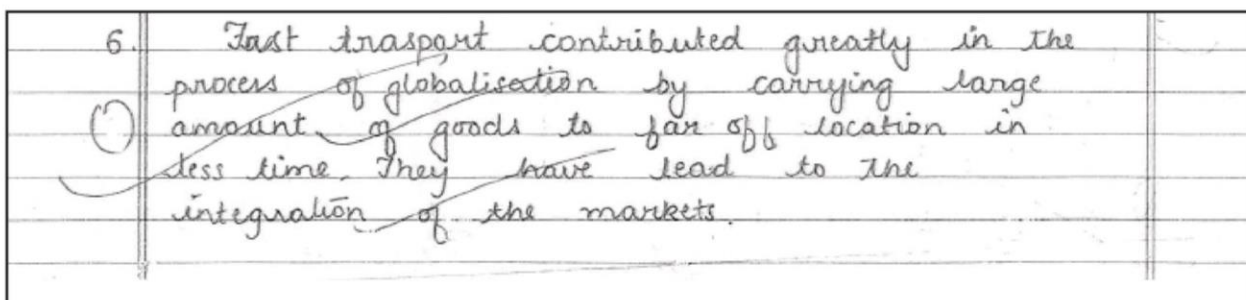 6. Fast trasport contributed greatly in the
process of globalisation by carrying large
amount of goods to far off location in
less time. They have lead to the
integration of the markets.